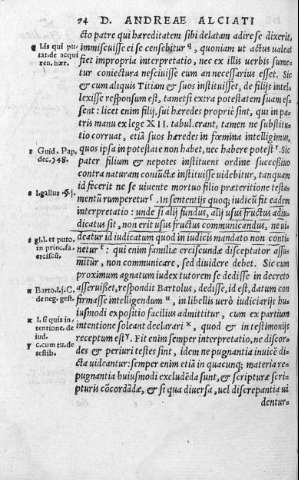 74 D. ANDREAE ALCIATI
cto patre qui hæreditatem sibi delatam adire se dixerit,
immiscuisse ei se censebitur q, quoniam ut actus ualeat
fiet impropria interpretatio, nec ex illis uerbis sume-
tur coniectura nesciuisse eum an necessarius esset. Sic
& cum aliquis Titium & suos instituisset, de filijs intel-
lexisse responsum est, tametsi extra potestatem suam es-
sent: licet enim filij, sui hæredes proprie sint, qui in pa-
tris manu ex lege XII. tabul. erant, tamen ne substitu-
tio corruat, etiã suos hæredes in fœmina intelligimus,
quos ipsa in potestate non habet, nec habere potest r. Sic
pater filium & nepotes instituens ordine successiuo
contra naturam coniũctæ institutiõ uidebitur, tanquam
id fecerit ne se uiuente mortuo filio præteritione testa-
mentũ rumperetur s. In sententijs quoq; iudicũ fit eadem
interpretatio: unde si alij fundus, alij usus fructus adiu-
dicatus sit, non erit usus fructus communicandus, ne ui-
deatur id iudicatum quod in iudicis mandato non conti-
netur t: qui enim familiæ erciscundæ disceptator assu-
mitur, non communicare, sed diuidere debet. Sic cum
proximum agnatum iudex tutorem se dedisse in decreto
asseruisset, respondit Bartolus, dedisse, id est, datum con-
firmasse intelligendum u, in libellis uerò iudiciarijs hu-
iusmodi expositio facilius admittitur, cum ex partium
intentione soleant declarari x, quod & in testimonijs
receptum est y. Fit enim semper interpretatio, ne discor-
des & periuri testes sint, idem ne pugnantia inuicẽ di-
cta uideantur: semper enim etiã in quacunq; materia re-
pugnantia huiusmodi excludẽda sunt, & scripturæ scri-
pturis cõcordãdæ, & si qua diuersa, uel discrepantia ui
dentur.
q l. si quis
tat. de acqui
ren. hær.
r Guid. Pap.
dec. 248.
s l. gallus
t gl. l. et puto.
in princ. fa.
ercisc.
u Bartol.
de neg. gest.
x l. si quis in-
tentione. de
iud.
y c. cum tu. de
testib.